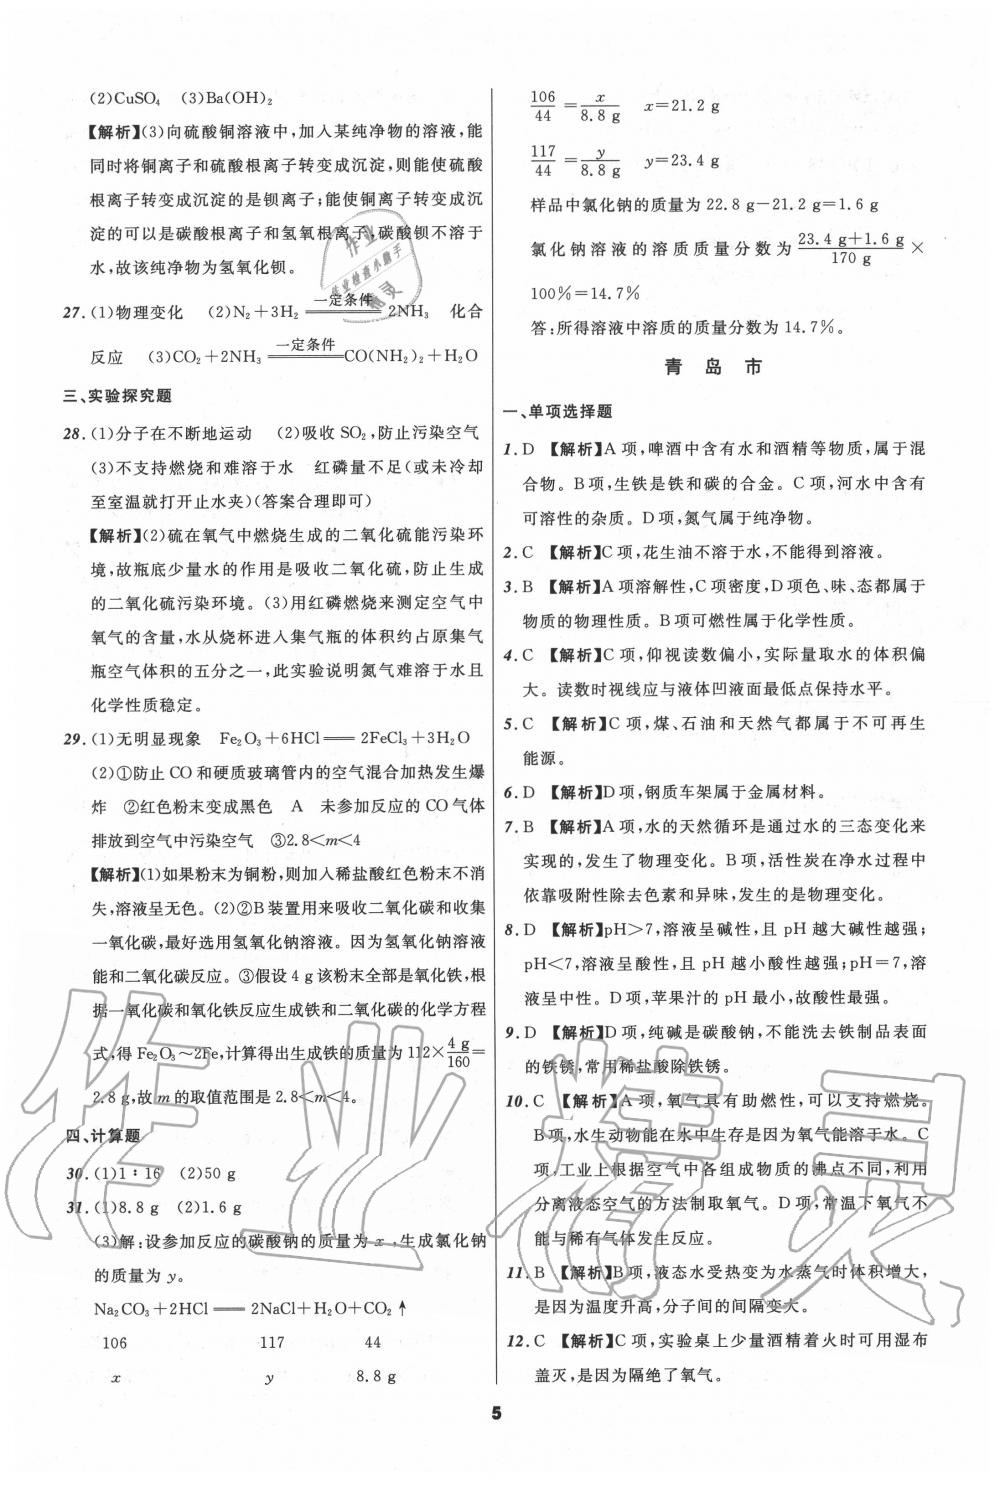 (2)CuSO₄ (3)Ba(OH)₂
【解析】(3)向硫酸铜溶液中,加入某纯净物的溶液,能
同时将铜离子和硫酸根离子转变成沉淀,则能使硫酸
根离子转变成沉淀的是钡离子;能使铜离子转变成沉
淀的可以是碳酸根离子和氢氧根离子,碳酸钡不溶于
水,故该纯净物为氢氧化钡。
27.(1)物理变化 (2)N₂+3H₂ 一定条件 2NH₃ 化合
反应 (3)CO₂+2NH₃ 一定条件 CO(NH₂)₂+H₂O
三、实验探究题
28.(1)分子在不断地运动 (2)吸收 SO₂,防止污染空气
(3)不支持燃烧和难溶于水 红磷量不足(或未冷却
至室温就打开止水夹)(答案合理即可)
【解析】(2)硫在氧气中燃烧生成的二氧化硫能污染环
境,故瓶底少量水的作用是吸收二氧化硫,防止生成
的二氧化硫污染环境。(3)用红磷燃烧来测定空气中
氧气的含量,水从烧杯进入集气瓶的体积约占原集气
瓶空气体积的五分之一,此实验说明氮气难溶于水且
化学性质稳定。
29.(1)无明显现象 Fe₂O₃+6HCl══2FeCl₃+3H₂O
(2)①防止 CO 和硬质玻璃管内的空气混合加热发生爆
炸 ②红色粉末变成黑色 A 未参加反应的 CO 气体
排放到空气中污染空气 ③2.8<m<4
【解析】(1)如果粉末为铜粉,则加入稀盐酸红色粉末不消
失,溶液呈无色。(2)②B 装置用来吸收二氧化碳和收集
一氧化碳,最好选用氢氧化钠溶液。因为氢氧化钠溶液
能和二氧化碳反应。③假设 4 g 该粉末全部是氧化铁,根
据一氧化碳和氧化铁反应生成铁和二氧化碳的化学方程
式,得 Fe₂O₃~2Fe,计算得出生成铁的质量为 112×4 g/160=
2.8 g,故 m 的取值范围是 2.8<m<4。
四、计算题
30.(1)1∶16 (2)50 g
31.(1)8.8 g (2)1.6 g
(3)解:设参加反应的碳酸钠的质量为 x,生成氯化钠
的质量为 y。
Na₂CO₃+2HCl══2NaCl+H₂O+CO₂↑
106 117 44
x y 8.8 g
106/44=x/8.8 g x=21.2 g
117/44=y/8.8 g y=23.4 g
样品中氯化钠的质量为 22.8 g−21.2 g=1.6 g
氯化钠溶液的溶质质量分数为 23.4 g+1.6 g/170 g×
100%=14.7%
答:所得溶液中溶质的质量分数为 14.7%。
青 岛 市
一、单项选择题
1.D 【解析】A 项,啤酒中含有水和酒精等物质,属于混
合物。B 项,生铁是铁和碳的合金。C 项,河水中含有
可溶性的杂质。D 项,氮气属于纯净物。
2.C 【解析】C 项,花生油不溶于水,不能得到溶液。
3.B 【解析】A 项溶解性,C 项密度,D 项色、味、态都属于
物质的物理性质。B 项可燃性属于化学性质。
4.C 【解析】C 项,仰视读数偏小,实际量取水的体积偏
大。读数时视线应与液体凹液面最低点保持水平。
5.C 【解析】C 项,煤、石油和天然气都属于不可再生
能源。
6.D 【解析】D 项,钢质车架属于金属材料。
7.B 【解析】A 项,水的天然循环是通过水的三态变化来
实现的,发生了物理变化。B 项,活性炭在净水过程中
依靠吸附性除去色素和异味,发生的是物理变化。
8.D 【解析】pH>7,溶液呈碱性,且 pH 越大碱性越强;
pH<7,溶液呈酸性,且 pH 越小酸性越强;pH=7,溶
液呈中性。D 项,苹果汁的 pH 最小,故酸性最强。
9.D 【解析】D 项,纯碱是碳酸钠,不能洗去铁制品表面
的铁锈,常用稀盐酸除铁锈。
10.C 【解析】A 项,氧气具有助燃性,可以支持燃烧。
B 项,水生动物能在水中生存是因为氧气能溶于水。C
项,工业上根据空气中各组成物质的沸点不同,利用
分离液态空气的方法制取氧气。D 项,常温下氧气不
能与稀有气体发生反应。
11.B 【解析】B 项,液态水受热变为水蒸气时体积增大,
是因为温度升高,分子间的间隔变大。
12.C 【解析】C 项,实验桌上少量酒精着火时可用湿布
盖灭,是因为隔绝了氧气。
5
作业
作业检查小助手
精灵
作业精灵